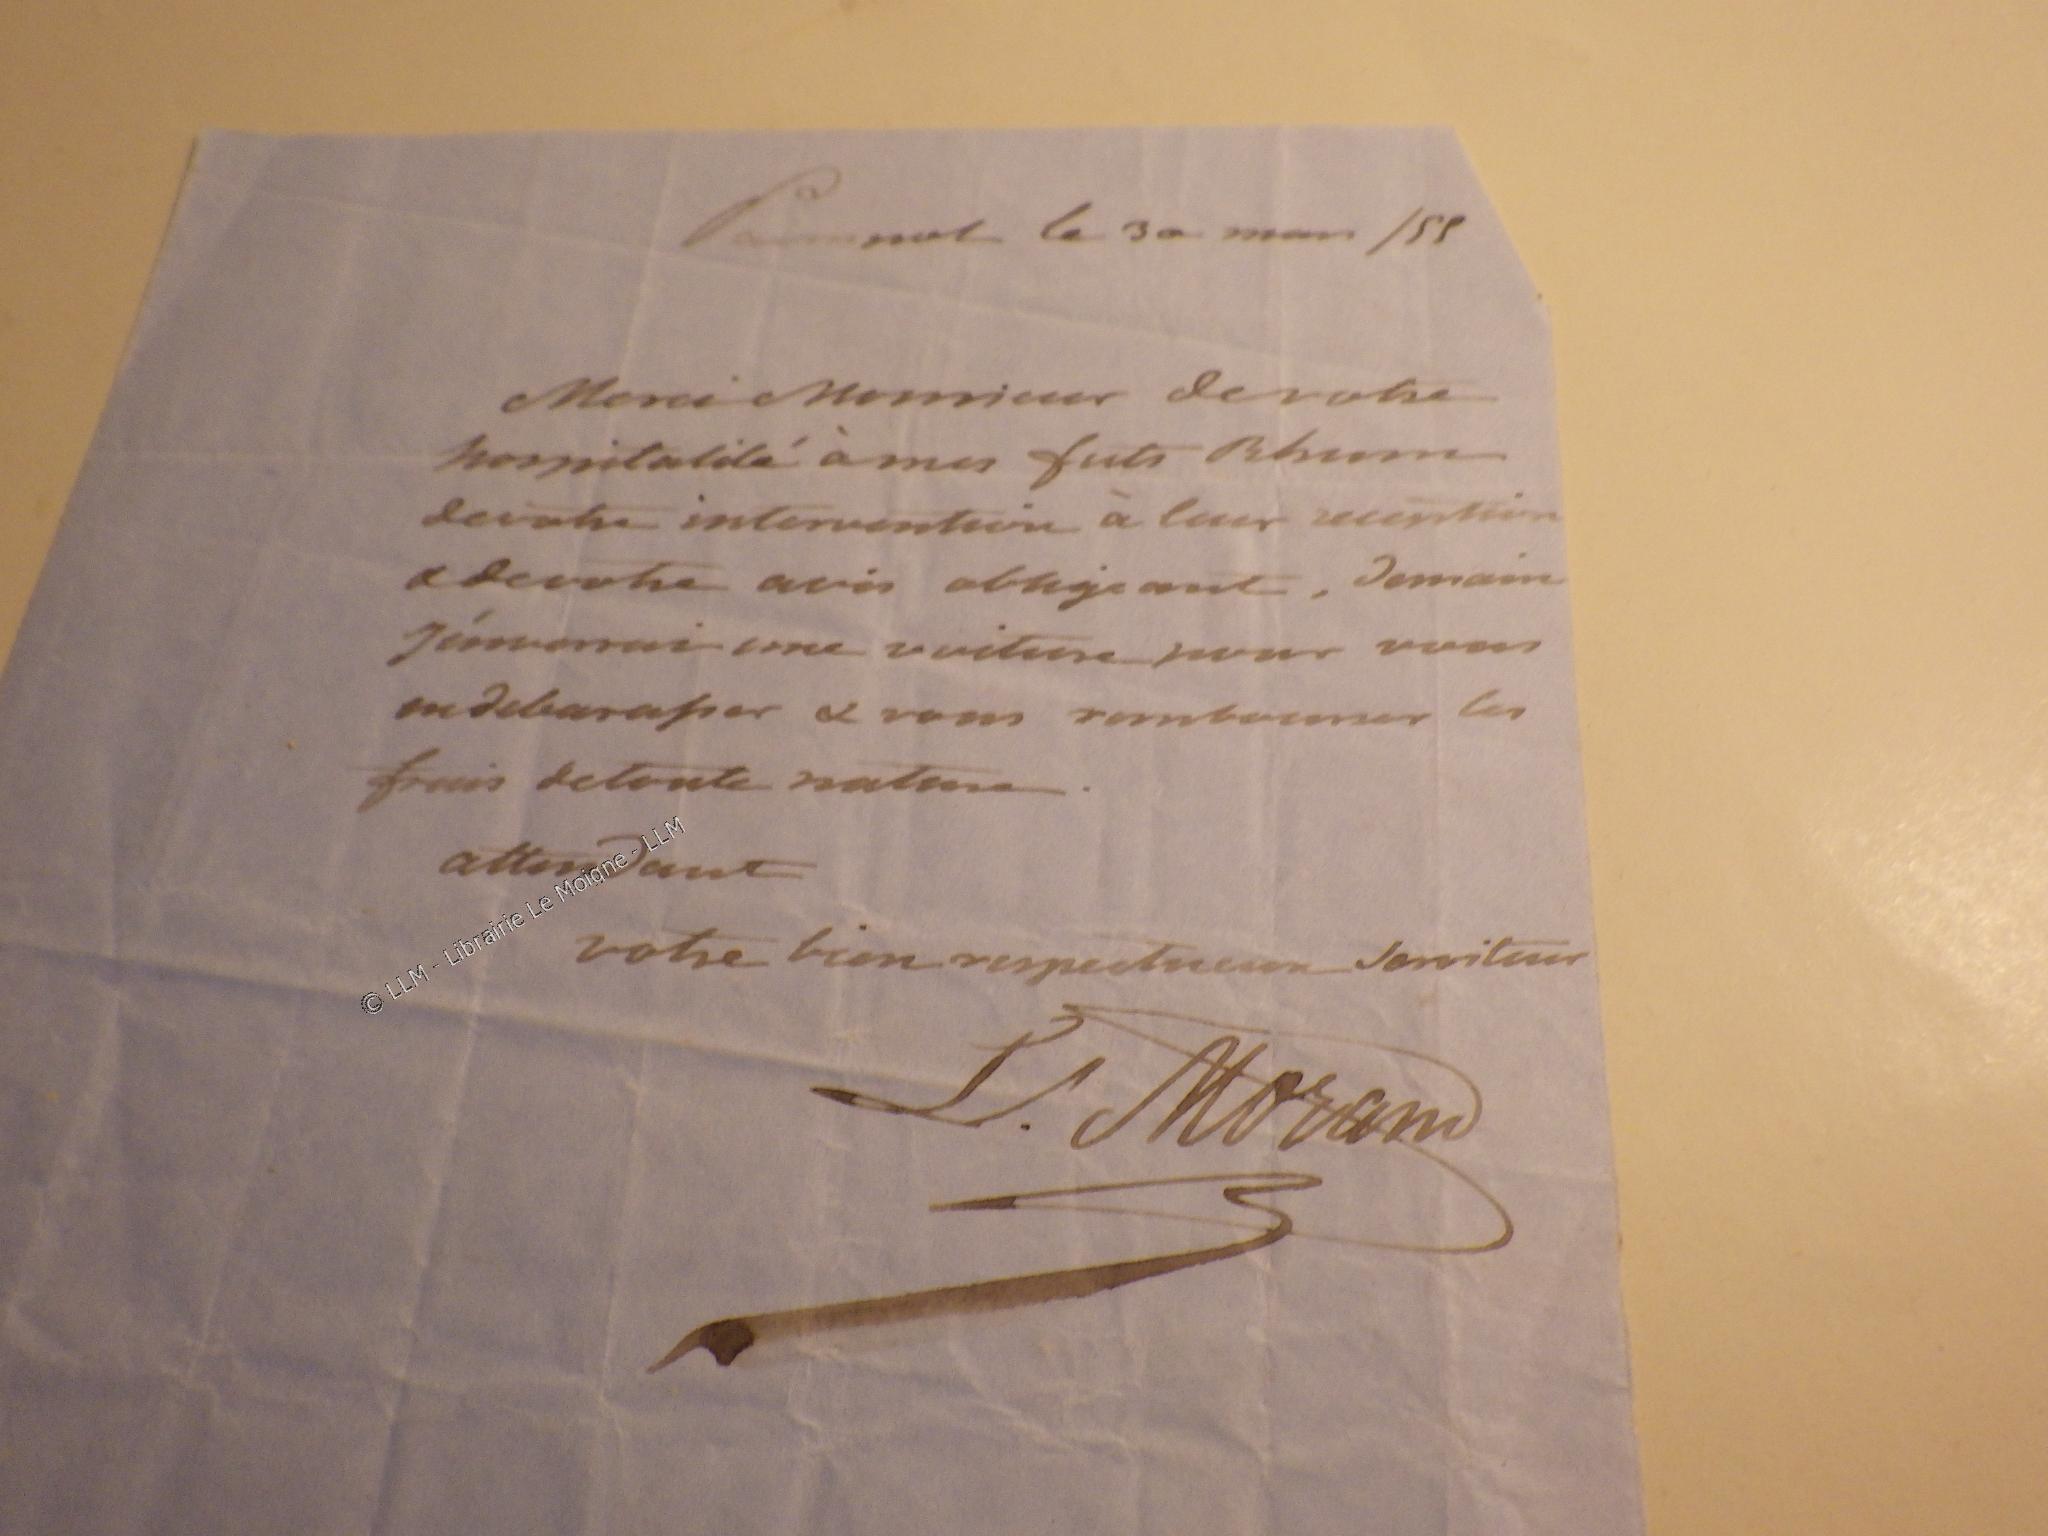 le 30 mars /55
Merci Monsieur de votre
hospitalité à mes futs Rhum
de votre intervention à leur reception
& de votre avis obligeant, demain
J'enverrai une voiture pour vous
en debarasser & vous rembourser les
frais de toute nature.
attendant
votre bien respectueux serviteur
L. Morand
© LLM - Librairie Le Moigne - LLM